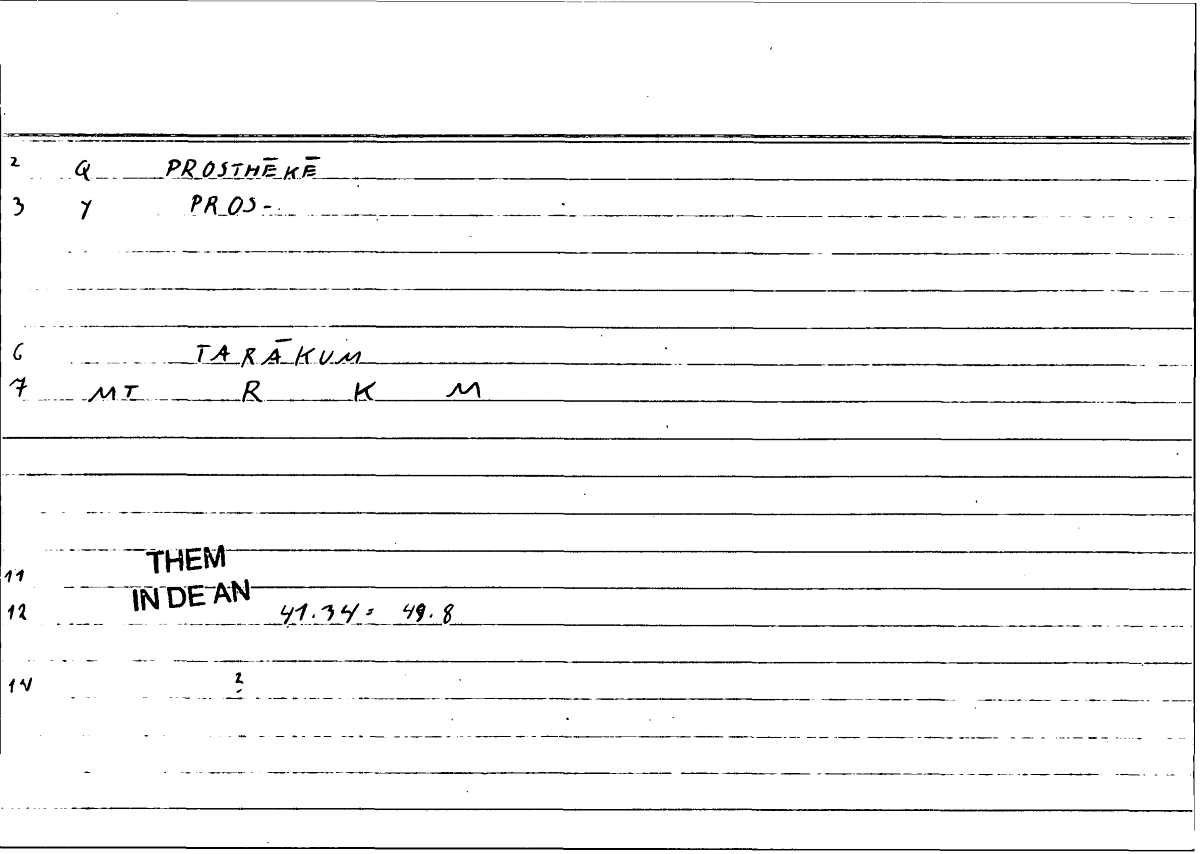 2 Q PROSTHĒKĒ
3 Y PROS-
6 TARĀKUM
7 MT R K M
11 THEM
12 IN DE AN 41.34 = 49.8
14 2